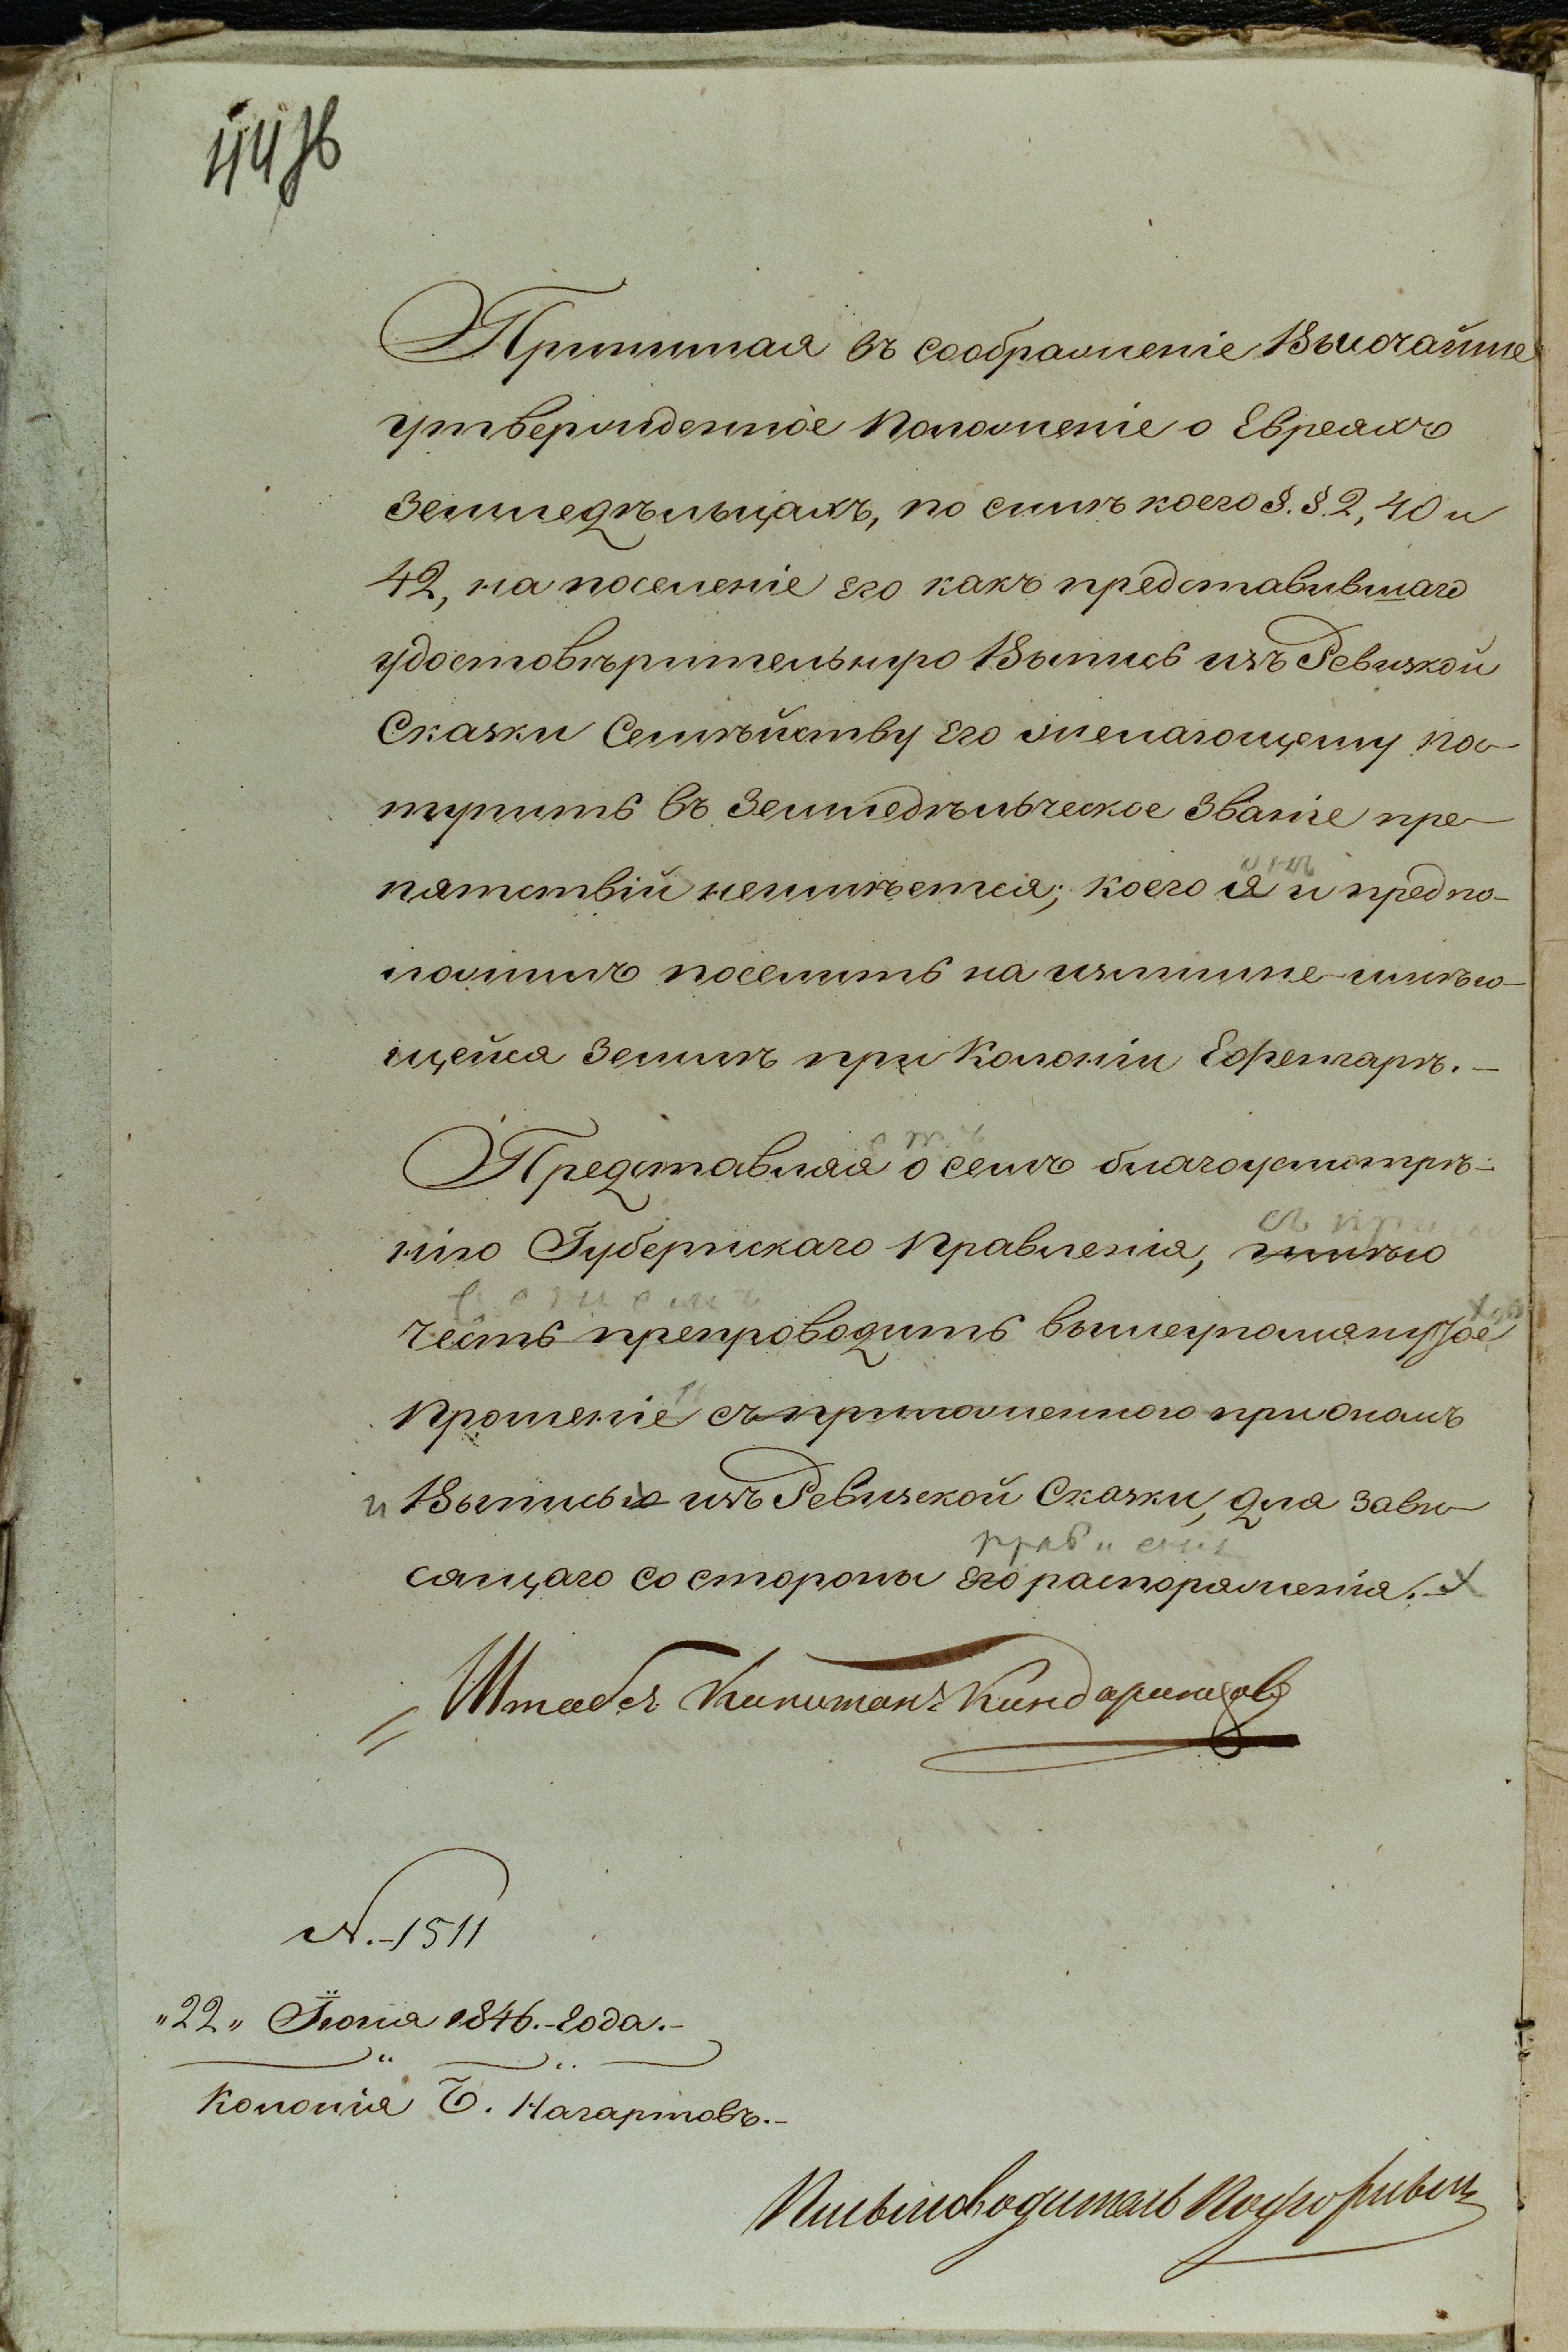 Принимая въ соображеніе Высочайше
утвержденное Положеніе о Евреяхъ
Земледѣльцахъ, по силѣ коего §.§. 2, 40 и
42, на поселеніе его какъ представившаго
удостовѣрительную Выпись изъ Ревизкой
Сказки Семѣйству его желающему пос-
тупить въ Земледѣльческое Званіе пре-
пятствій неимѣется; коего я и предпо-
ложилъ поселить на излишне-имѣю-
щейся Землѣ при Колоніи Ефенгарѣ.-
Представляя о семъ благоусмотрѣ-
нію Губернскаго Правленія, имѣю
честь препроводить вышеупомянутое
Прошеніе съ приложенною при ономъ
и Выписью изъ Ревизской Сказки, для зави-
сящаго со стороны его распоряженія.-
Штабсъ Капитанъ
N.-1511
"22" Іюня 1846.-года.-
Колонія Б. Нагартовъ.-
Письмоводитель